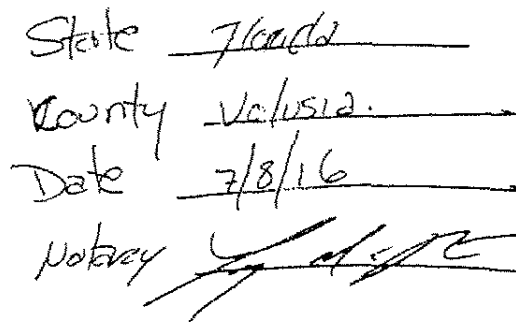 State Florida
County Volusia.
Date 7/8/16
Notary